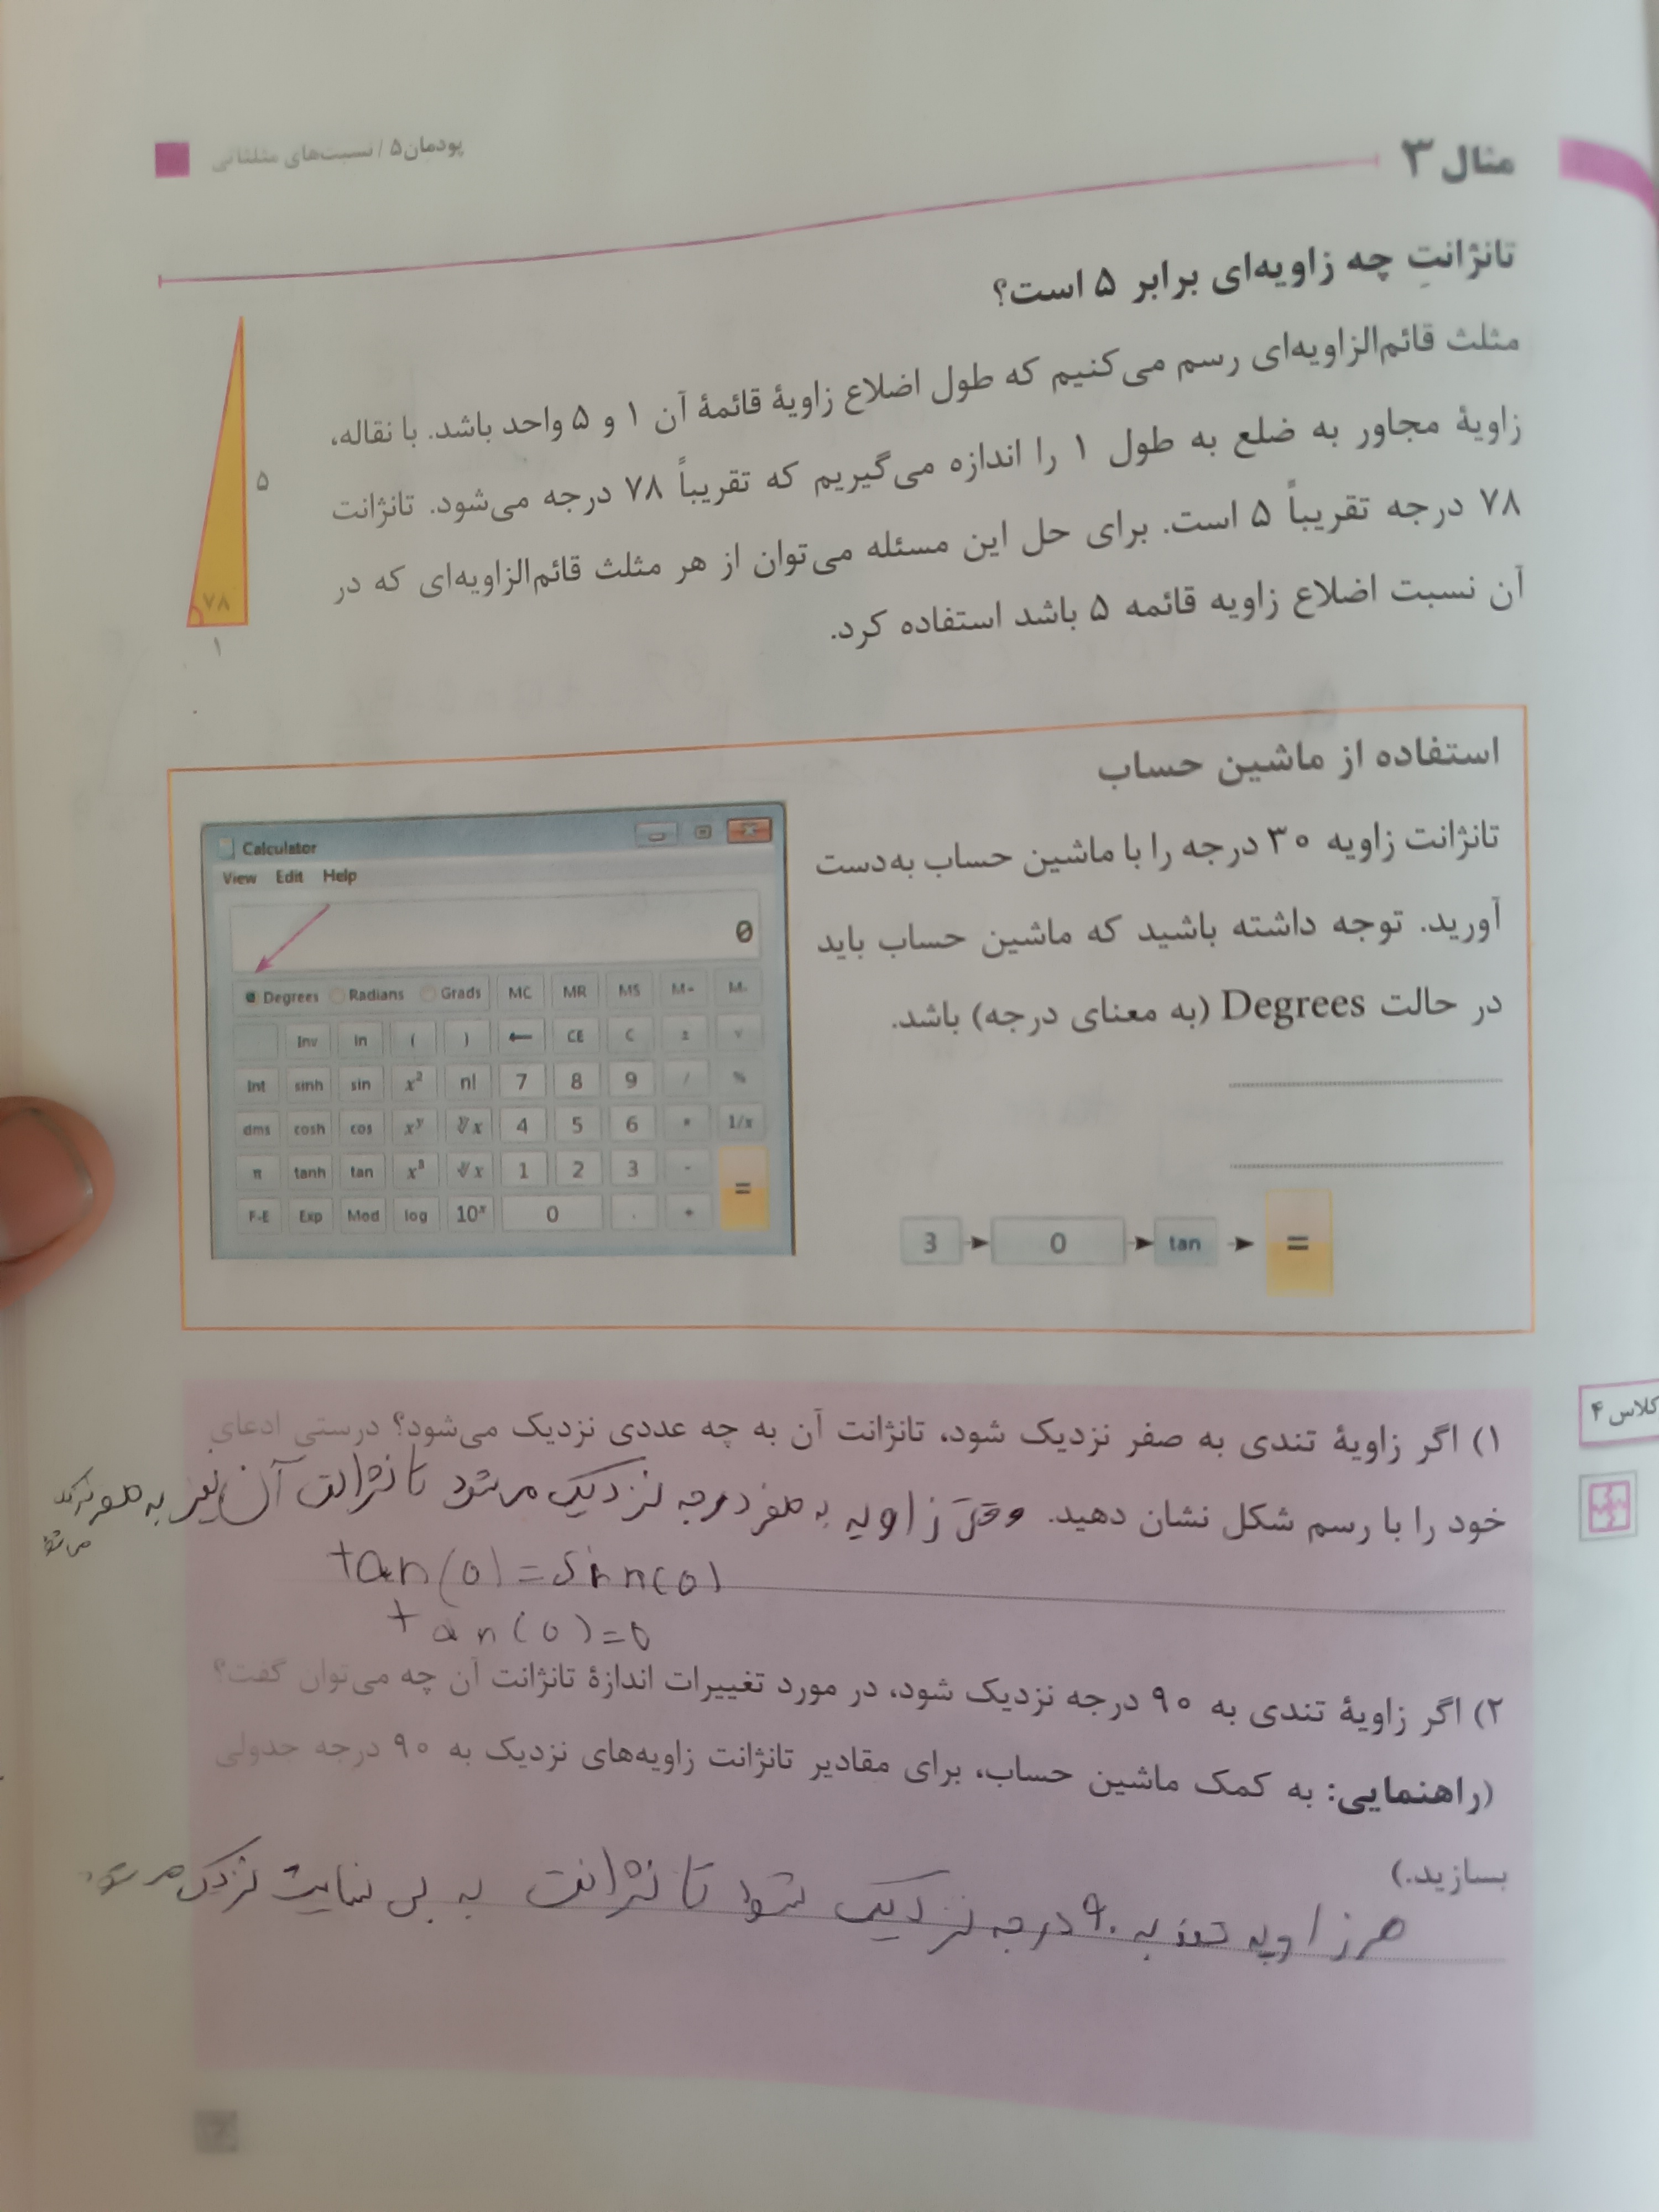 پودمان ۵ / نسبت‌های مثلثاتی
مثال ۳
تانژانتِ چه زاویه‌ای برابر ۵ است؟
مثلث قائم‌الزاویه‌ای رسم می‌کنیم که طول اضلاع زاویهٔ قائمهٔ آن ۱ و ۵ واحد باشد. با نقاله،
زاویهٔ مجاور به ضلع به طول ۱ را اندازه می‌گیریم که تقریباً ۷۸ درجه می‌شود. تانژانت
۷۸ درجه تقریباً ۵ است. برای حل این مسئله می‌توان از هر مثلث قائم‌الزاویه‌ای که در
آن نسبت اضلاع زاویه قائمه ۵ باشد استفاده کرد.
۵
۷۸
۱
استفاده از ماشین حساب
تانژانت زاویه ۳۰ درجه را با ماشین حساب به‌دست
آورید. توجه داشته باشید که ماشین حساب باید
در حالت Degrees (به معنای درجه) باشد.
Calculator
View Edit Help
0
Degrees Radians Grads MC MR MS M+ M-
Inv ln ( ) ← CE C ± √
Int sinh sin x² n! 7 8 9 / %
dms cosh cos xʸ ʸ√x 4 5 6 * 1/x
π tanh tan x³ ³√x 1 2 3 - =
F-E Exp Mod log 10ˣ 0 . +
3 0 tan =
کلاس ۴
۱) اگر زاویهٔ تندی به صفر نزدیک شود، تانژانت آن به چه عددی نزدیک می‌شود؟ درستی ادعای
خود را با رسم شکل نشان دهید. وقتی زاویه به صفر درجه نزدیک می‌شود تانژانت آن نیز به صفر نزدیک
می‌شود
tan(0) = sin(0)
tan(0)=0
۲) اگر زاویهٔ تندی به ۹۰ درجه نزدیک شود، در مورد تغییرات اندازهٔ تانژانت آن چه می‌توان گفت؟
(راهنمایی: به کمک ماشین حساب، برای مقادیر تانژانت زاویه‌های نزدیک به ۹۰ درجه جدولی
بسازید.)
هر زاویه تند به ۹۰ درجه نزدیک شود تانژانت به بی نهایت نزدیک می‌شود